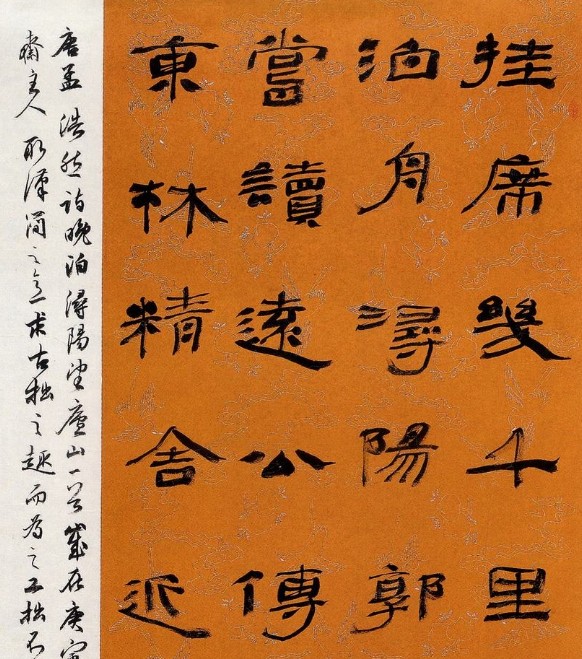 挂席幾千里
泊舟潯陽郭
嘗讀遠公傳
東林精舍近
唐孟浩然詩晚泊潯陽望廬山一首歲在庚寅
主人取漢簡之意求古拙之趣而為之不拙不